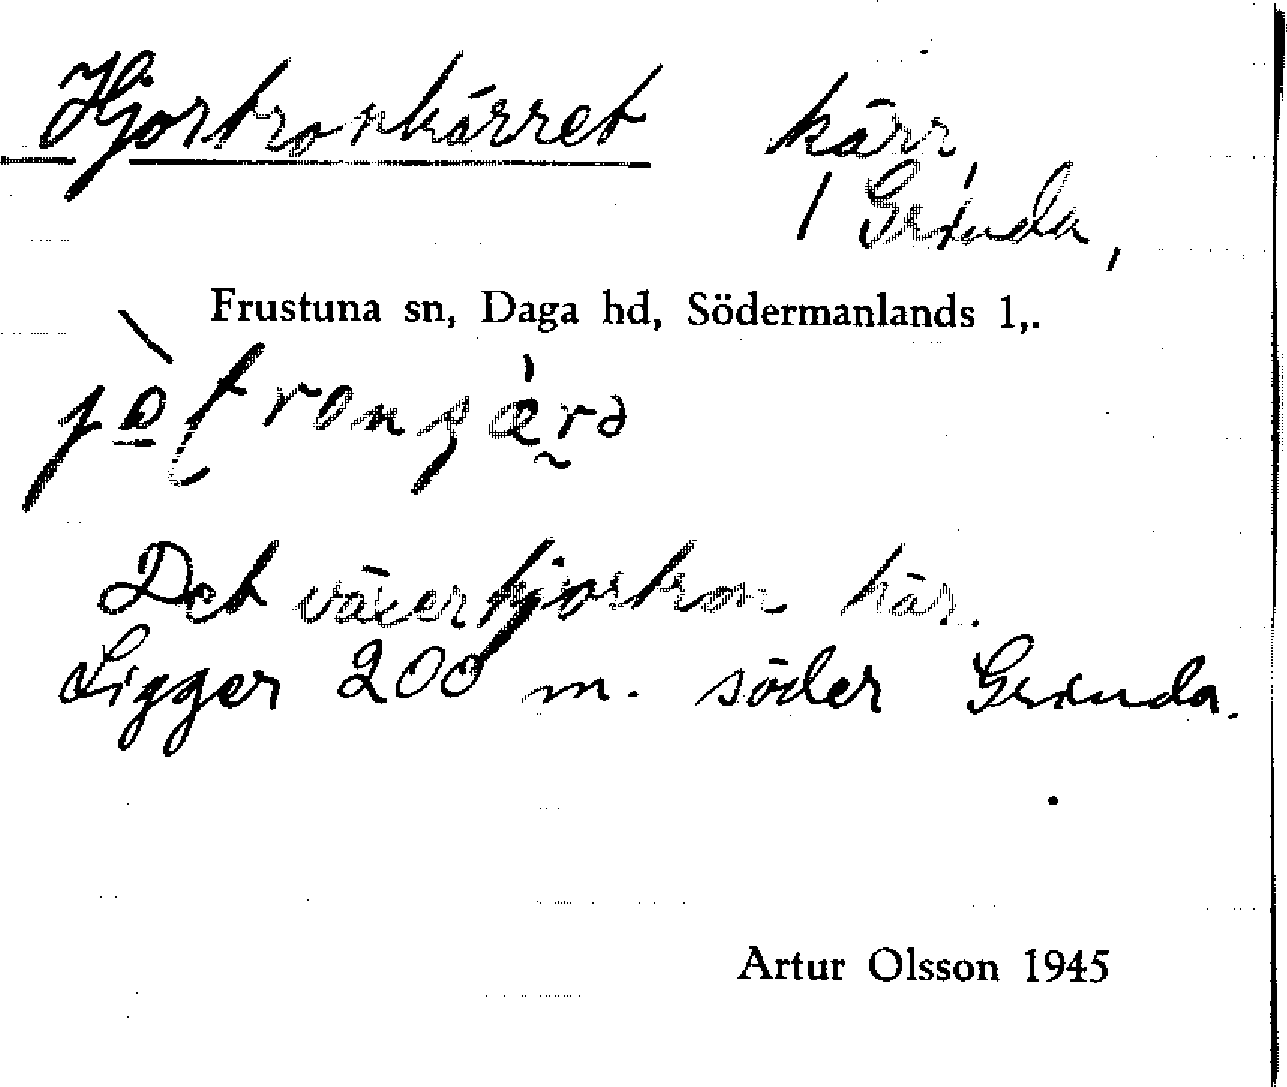 Hjortronkärret kärr,
1 Grinda,
Frustuna sn, Daga hd, Södermanlands l,.
Det växer hjortron här.
Ligger 200 m. söder Grinda.
Artur Olsson 1945